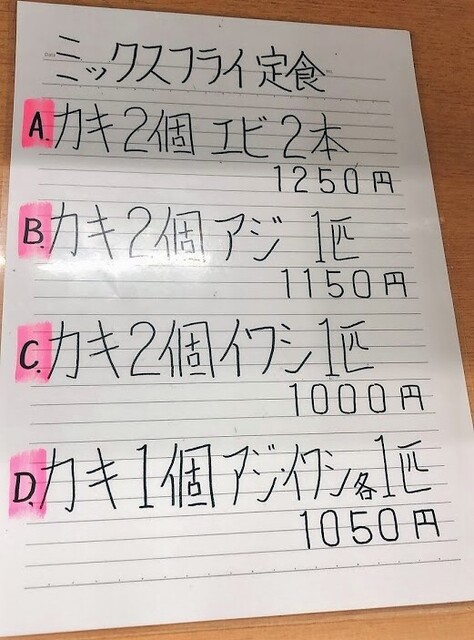 ミックスフライ定食
A. カキ2個 エビ2本
1250円
B. カキ2個 アジ 1匹
1150円
C. カキ2個 イワシ1匹
1000円
D. カキ1個 アジ・イワシ各1匹
1050円